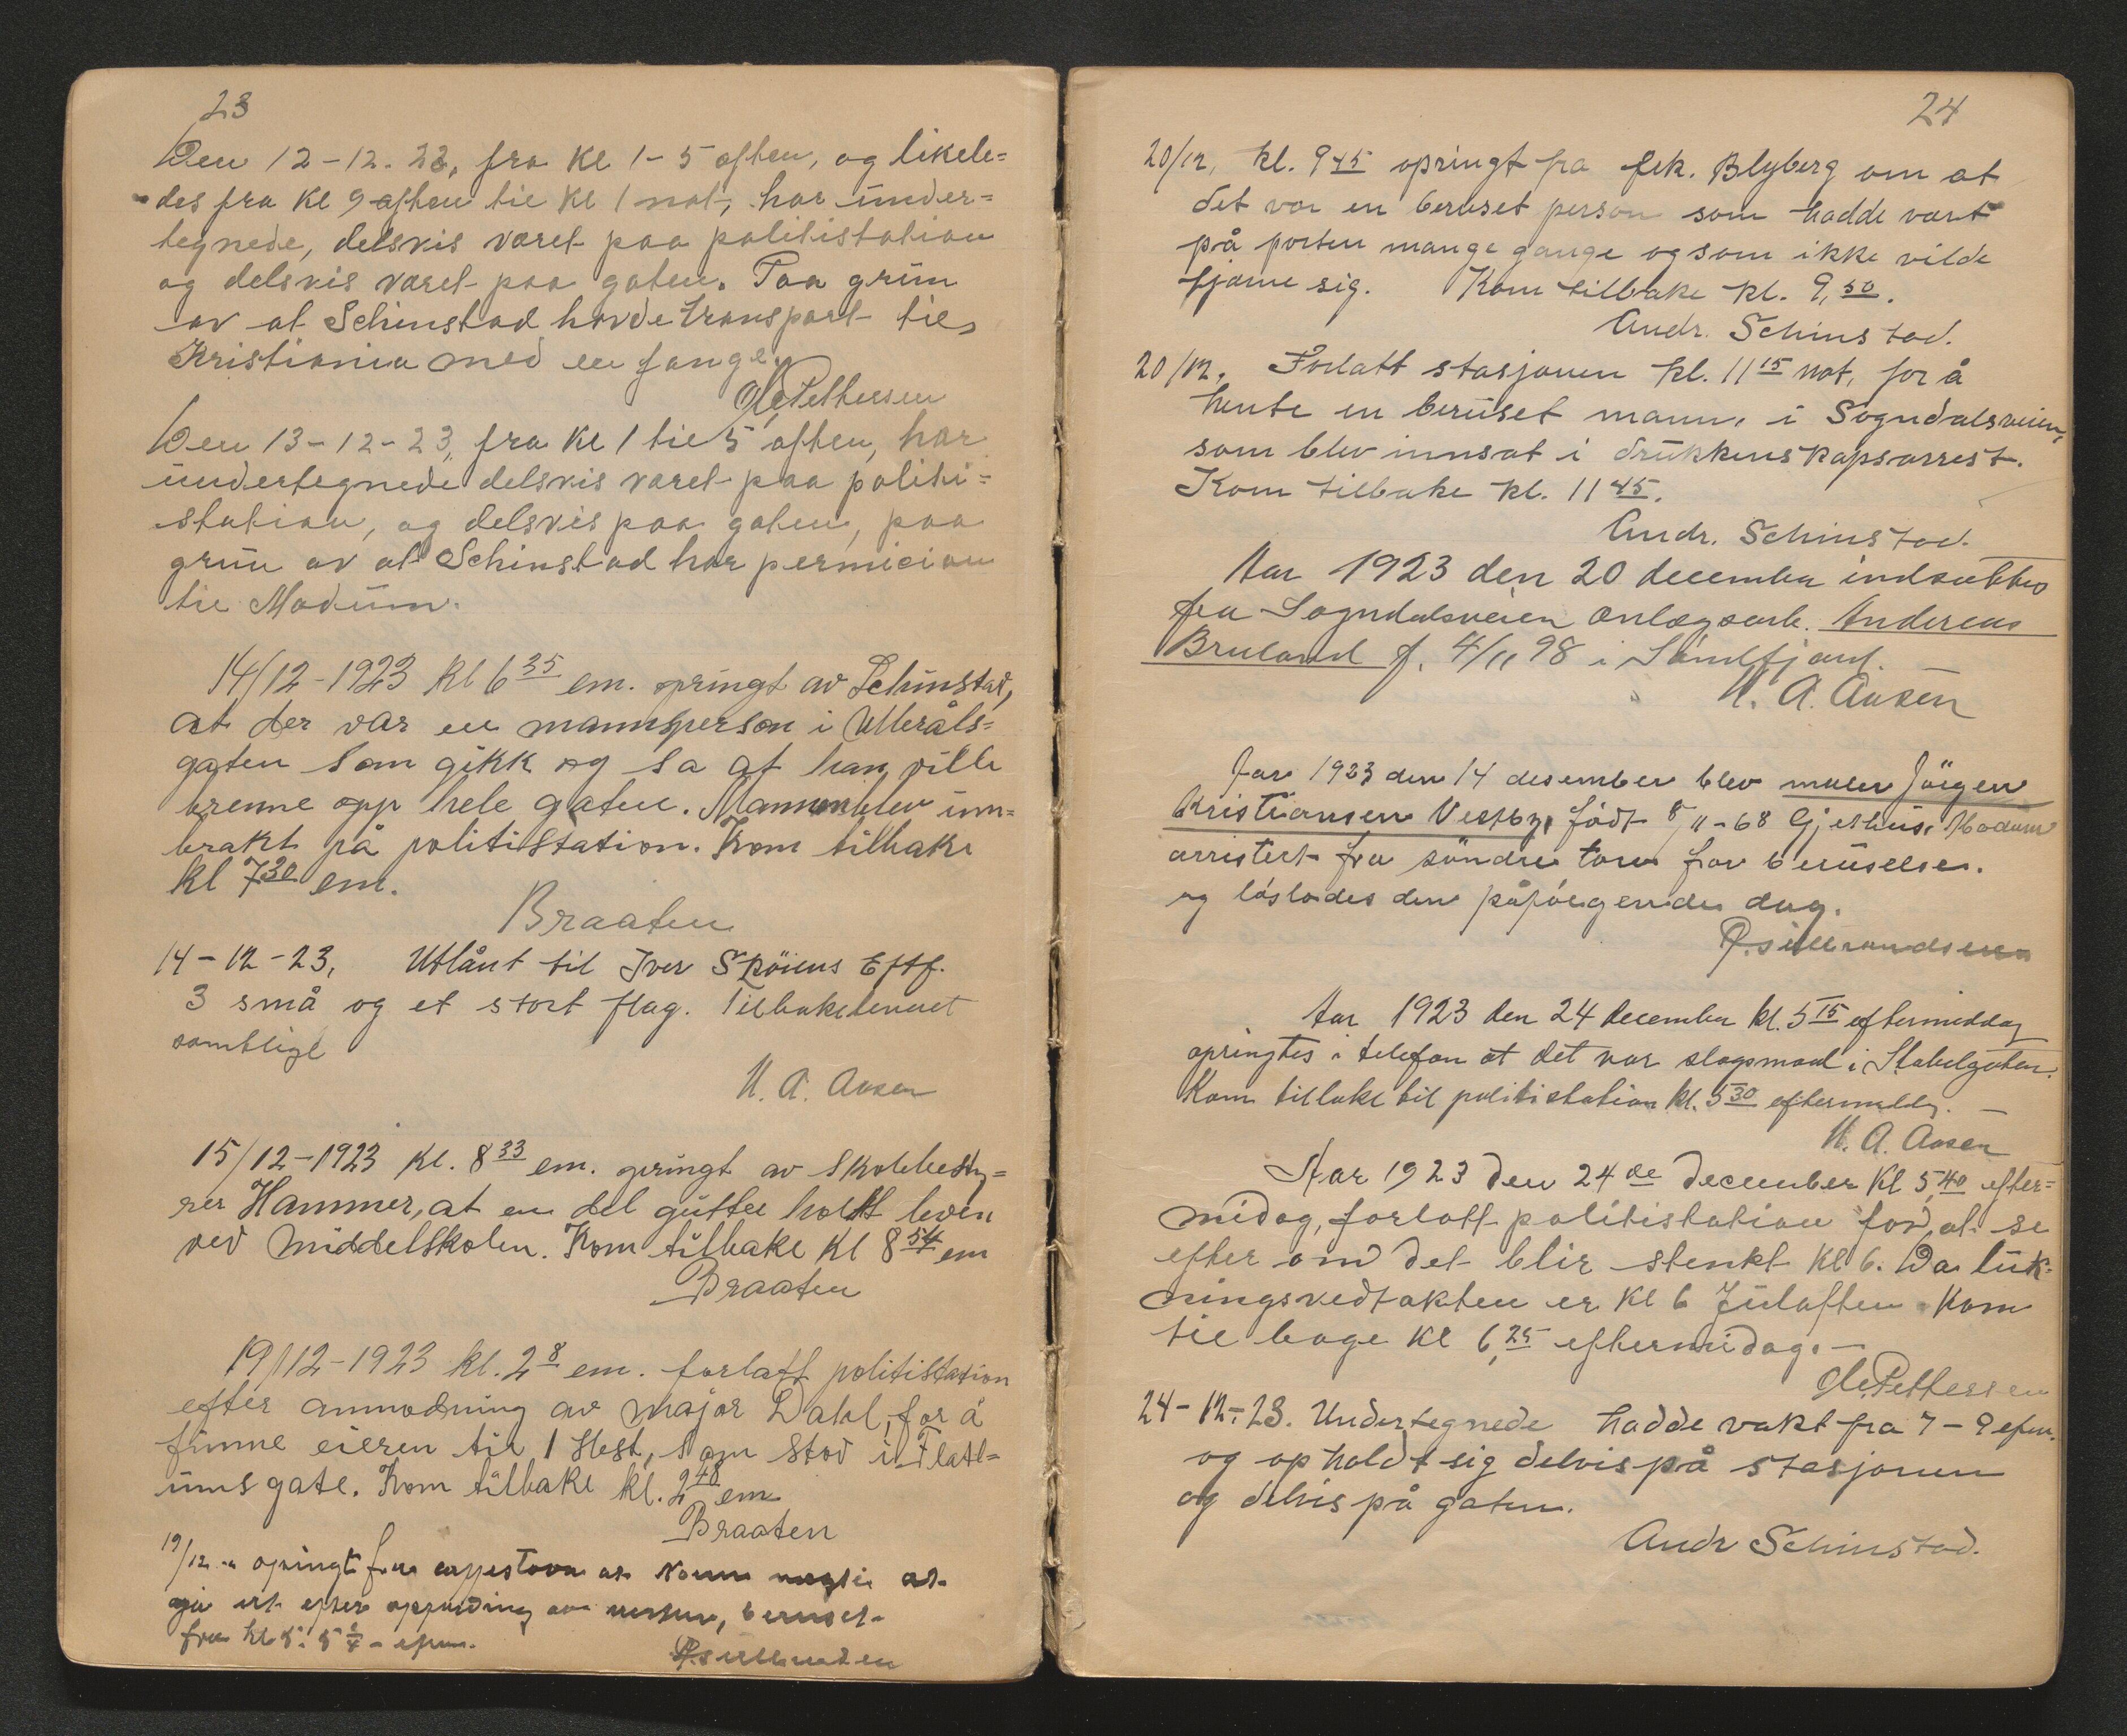 23
Den 12-12.23, fra Kl 1-5 aften, og likele=
des fra Kl 9 aften til Kl 1 nat, har under=
tegnede, delsvis været paa politistation
og delsvis været paa gaten. Paa grun
av at Schinstad havde transport til
Kristiania med en fange.
Ole Pettersen
Den 13-12-23, fra Kl 1 til 5 aften, har
undertegnede delsvis været paa politi=
station, og delsvis paa gaten, paa
grun av at Schinstad har permicion
til Modum.
14/12-1923 Kl 6 35 em. opringt av Schinstad,
at der var en mannsperson i Ulleråls=
gaten som gikk og sa at han ville
brenne opp hele gaten. Mannen blev inn=
brakt på politistation. Kom tilbake
kl 7 30 em.
Braaten
14-12-23, Utlånt til Iver Sköiens Eftf.
3 små og et stort flag. Tilbakelevert
samtlige
H. A. Aasen
15/12-1923 Kl. 8 33 em. opringt av Skolebesty=
rer Hammer, at en del gutter holdt leven
ved Middelskolen. Kom tilbake Kl 8 54 em
Braaten
19/12-1923 kl. 2 8 em. forlatt politistation
efter anmodning av major Dahl, for å
finne eieren til 1 Hest, som stod i Flatt=
ums gate. Kom tilbake kl. 2 48 em
Braaten
19/12 opringt fra at
gå ut efter av beruset
fra kl 5: 5 1/4 - efm.
24
20/12, kl. 9 45 opringt fra frk. Blyberg om at
det var en beruset person som hadde vært
på porten mange gange og som ikke vilde
fjerne sig. Kom tilbake kl. 9,50.
Andr. Schinstad.
20/12. Forlatt stasjonen kl. 11 15 nat, for å
hente en beruset mann, i Sogndalsveien,
som blev innsat i drukkenskapsarrest.
Kom tilbake kl. 11 45.
Andr. Schinstad.
Aar 1923 den 20 december indsattes
fra Sogndalsveien anlægsarb. Andereas
Bruland f. 4/11 98 i Söndfjord.
H. A. Aasen
Aar 1923 den 14 desember blev maler Jörgen
Kristiansen Vestby, född 8/11-68 Gjethus, Modum
arristert fra söndre torv for beruselse.
og löslades den påfölgende dag.
Aar 1923 den 24 december kl. 5 15 eftermiddag
opringtes i telefon at det var slagsmaal i Stabelgaten.
Kom tilbake til politistation kl. 5 30 eftermiddg. —
H. A. Aasen
Aar 1923 den 24 de december Kl 5,40 efter=
midag, forlatt politistation for at se
efter om det blir stenkt Kl 6. Da luk=
ningsvedtakten er Kl 6 Julaften. Kom
til bage Kl 6,25 eftermidag. —
Ole Pettersen
24-12-23. Undertegnede hadde vakt fra 7-9 efm.
og opholdt sig delvis på stasjonen
og delvis på gaten.
Andr Schinstad.